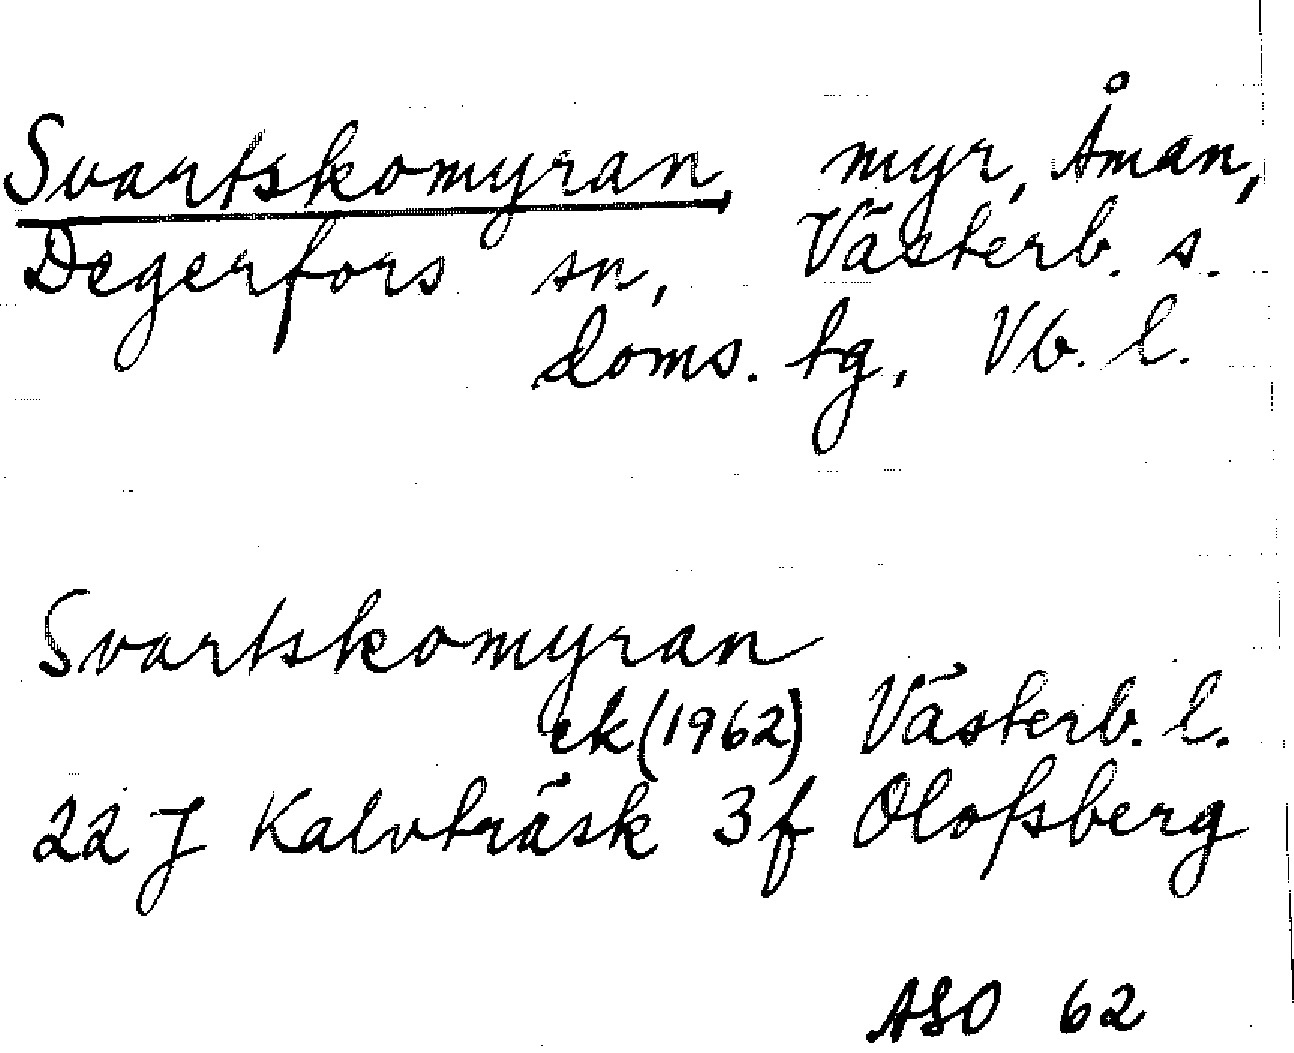 Svartskomyran, myr, Åman,
Degerfors sn, Västerb. s.
doms. tg, Vb. l.
Svartskomyran
ek (1962) Västerb. l.
22 J Kalvträsk 3f Olofsberg
ASO 62